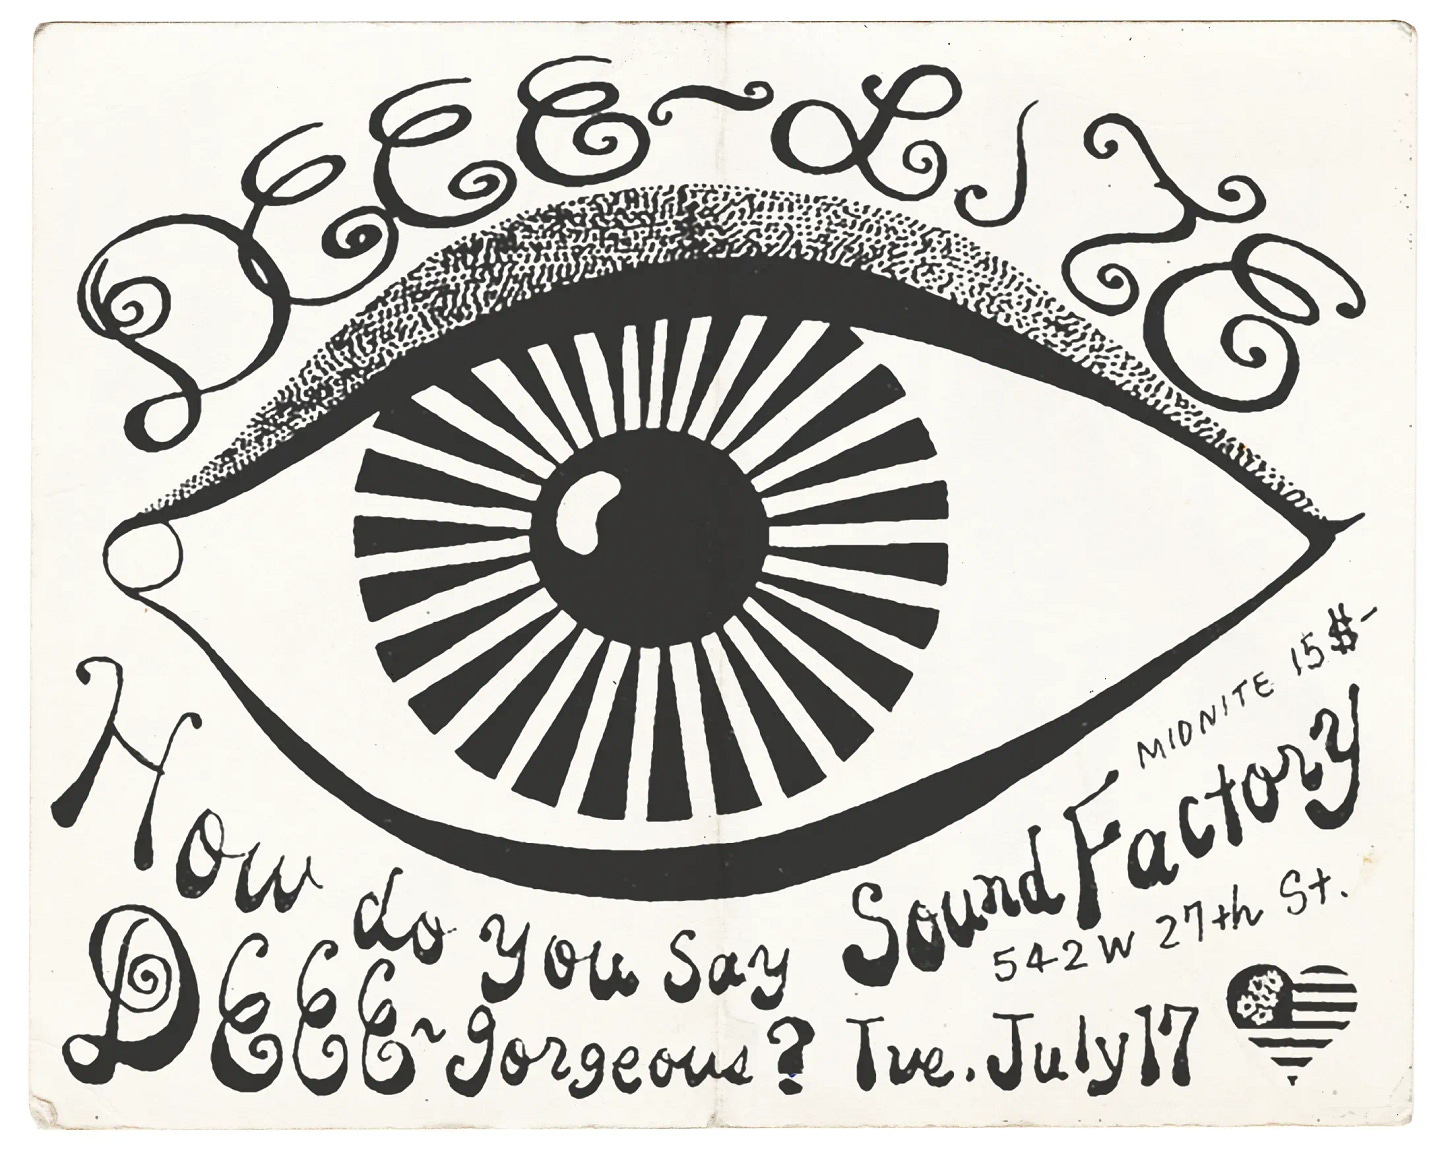 DEEE~LiTE
How do you say
DEEE~gorgeous?
MIDNITE 15$-
Sound Factory
542 W 27th St.
Tue. July 17